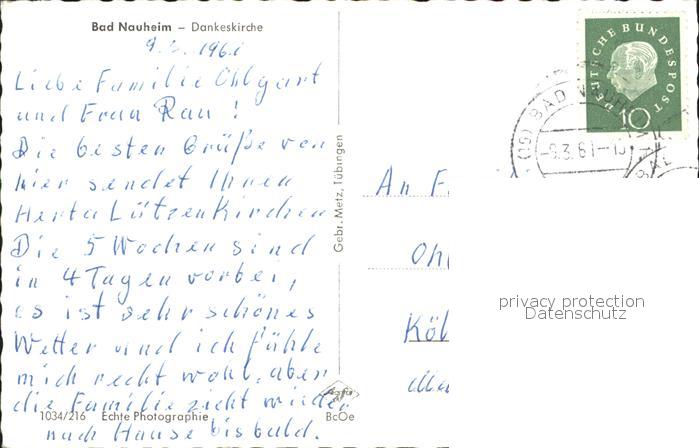 Bad Nauheim – Dankeskirche
9.3.1961
Liebe Familie Ohlgart
und Frau Rau!
Die besten Grüße von
hier sendet Ihnen
Herta Lützenkirchen
Die 5 Wochen sind
in 4 Tagen vorbei,
es ist sehr schönes
Wetter und ich fühle
mich recht wohl, aber
die Familie zieht wieder
nach Hause bis bald.
1034/216 Echte Photographie BcOe
Agfa
Gebr. Metz, Tübingen
DEUTSCHE BUNDESPOST
10
(19) BAD NAUH
-9.3.61-1
An F
Oh
Köl
privacy protection
Datenschutz